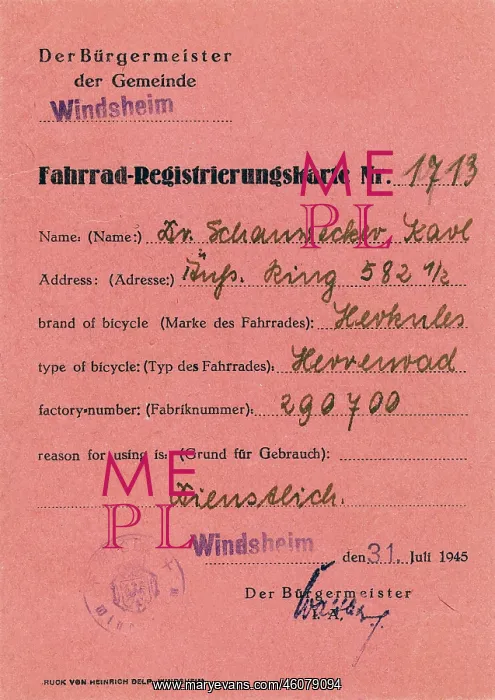 Der Bürgermeister
der Gemeinde
Windsheim
Fahrrad-Registrierungskarte Nr. 1713
ME
PL
Name: (Name:) Dr. Schanzecker Karl
Address: (Adresse:) Äuß. Ring 582 1/2
brand of bicycle (Marke des Fahrrades): Herkules
type of bicycle: (Typ des Fahrrades): Herrenrad
factory-number: (Fabriknummer): 290700
reason for using is: (Grund für Gebrauch):
Dienstlich.
ME
PL
Windsheim den 31. Juli 1945
Der Bürgermeister
I. A.
DRUCK VON HEINRICH DELP, WINDSHEIM
www.maryevans.com/46079094